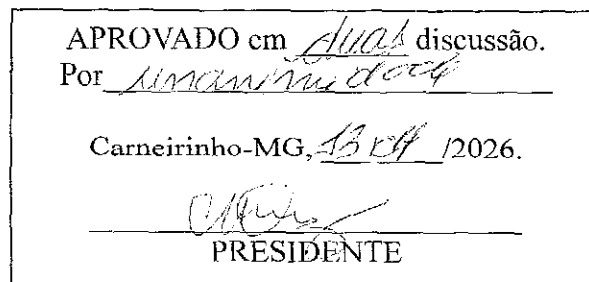 APROVADO em duas discussão.
Por unanimidade
Carneirinho-MG, 13 /2026.
PRESIDENTE